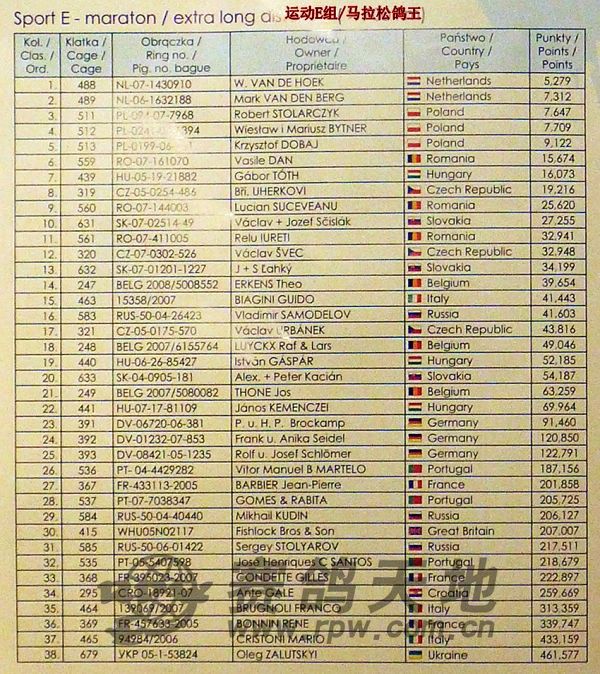 Sport E - maraton / extra long dis 运动E组/马拉松鸽王 )
Kol. / Clas. / Ord. Klatka / Cage / Cage Obrączka / Ring no. / Pig. no. bague Hodowca / Owner / Propriétaire Państwo / Country / Pays Punkty / Points / Points
1. 488 NL-07-1430910 W. VAN DE HOEK Netherlands 5,279
2. 489 NL-06-1632188 Mark VAN DEN BERG Netherlands 7,312
3. 511 Robert STOLARCZYK Poland 7,647
4. 512 Wiesław i Mariusz BYTNER Poland 7,709
5. 513 Krzysztof DOBAJ Poland 9,122
6. 559 RO-07-161070 Vasile DAN Romania 15,674
7. 439 HU-05-19-21882 Gábor TÓTH Hungary 16,073
8. 319 CZ-05-0254-486 Bří. UHERKOVI Czech Republic 19,216
9. 560 RO-07-144003 Lucian SUCEVEANU Romania 25,620
10. 631 SK-07-02514-49 Václav + Jozef Sčislák Slovakia 27,255
11. 561 RO-07-411005 Relu IURETI Romania 32,941
12. 320 CZ-07-0302-526 Václav ŠVEC Czech Republic 32,948
13. 632 SK-07-01201-1227 J + S Ľahký Slovakia 34,199
14. 247 BELG 2008/5008552 ERKENS Theo Belgium 39,654
15. 463 15358/2007 BIAGINI GUIDO Italy 41,443
16. 583 RUS-50-04-26423 Vladimir SAMODELOV Russia 41,603
17. 321 CZ-05-0175-570 Václav URBÁNEK Czech Republic 43,816
18. 248 BELG 2007/6155764 LUYCKX Raf & Lars Belgium 49,046
19. 440 HU-06-26-85427 István GÁSPÁR Hungary 52,185
20. 633 SK-04-0905-181 Alex. + Peter Kacián Slovakia 54,187
21. 249 BELG 2007/5080082 THONE Jos Belgium 63,259
22. 441 HU-07-17-81109 János KEMENCZEI Hungary 69,964
23. 391 DV-06720-06-381 P. u. H. P. Brockamp Germany 91,460
24. 392 DV-01232-07-853 Frank u. Anika Seidel Germany 120,850
25. 393 DV-08421-05-1235 Rolf u. Josef Schlömer Germany 122,791
26. 536 PT- 04-4429282 Vitor Manuel B MARTELO Portugal 187,156
27. 367 FR-433113-2005 BARBIER Jean-Pierre France 201,858
28. 537 PT-07-7038347 GOMES & RABITA Portugal 205,725
29. 584 RUS-50-04-40440 Mikhail KUDIN Russia 206,127
30. 415 WHU05N02117 Fishlock Bros & Son Great Britain 207,007
31. 585 RUS-50-06-01422 Sergey STOLYAROV Russia 217,511
32. 535 PT-05-5407598 José Henriques C SANTOS Portugal 218,679
33. 368 FR-395023-2007 CONDETTE GILLES France 222,897
34. 295 CRO-18921-07 Ante GALE Croatia 259,669
35. 464 139069/2007 BRUGNOLI FRANCO Italy 313,359
36. 369 FR-457633-2005 BONNIN RENE France 339,747
37. 465 94984/2006 CRISTONI MARIO Italy 433,159
38. 679 УКР 05-1-53824 Oleg ZALUTSKYI Ukraine 461,577
赛鸽天地
www.rpw.com.cn